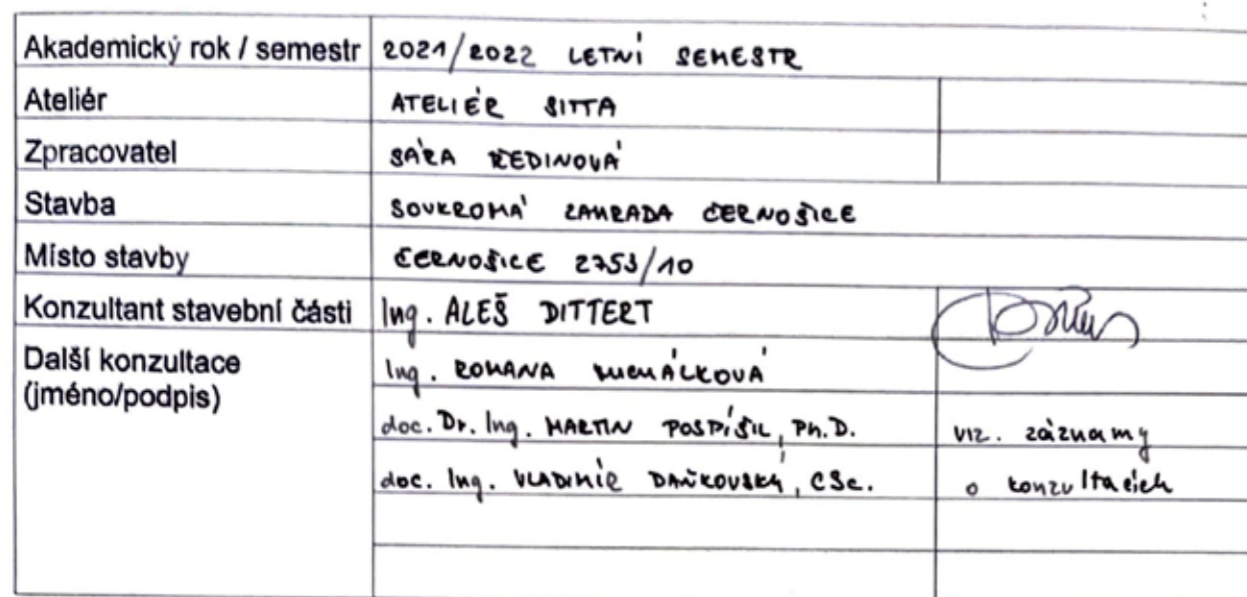 Akademický rok / semestr 2021/2022 LETNÍ SEMESTR
Ateliér ATELIÉR SITTA
Zpracovatel SÁRA ŘEDINOVÁ
Stavba SOUKROMÁ ZAHRADA ČERNOŠICE
Místo stavby ČERNOŠICE 2753/10
Konzultant stavební části Ing. ALEŠ DITTERT
Další konzultace Ing. ROMANA MICHÁLKOVÁ
(jméno/podpis)
doc. Dr. Ing. MARTIN POSPÍŠIL, Ph.D. viz. záznamy
doc. Ing. VLADIMÍR DAŇKOVSKÝ, CSc. o konzultacích